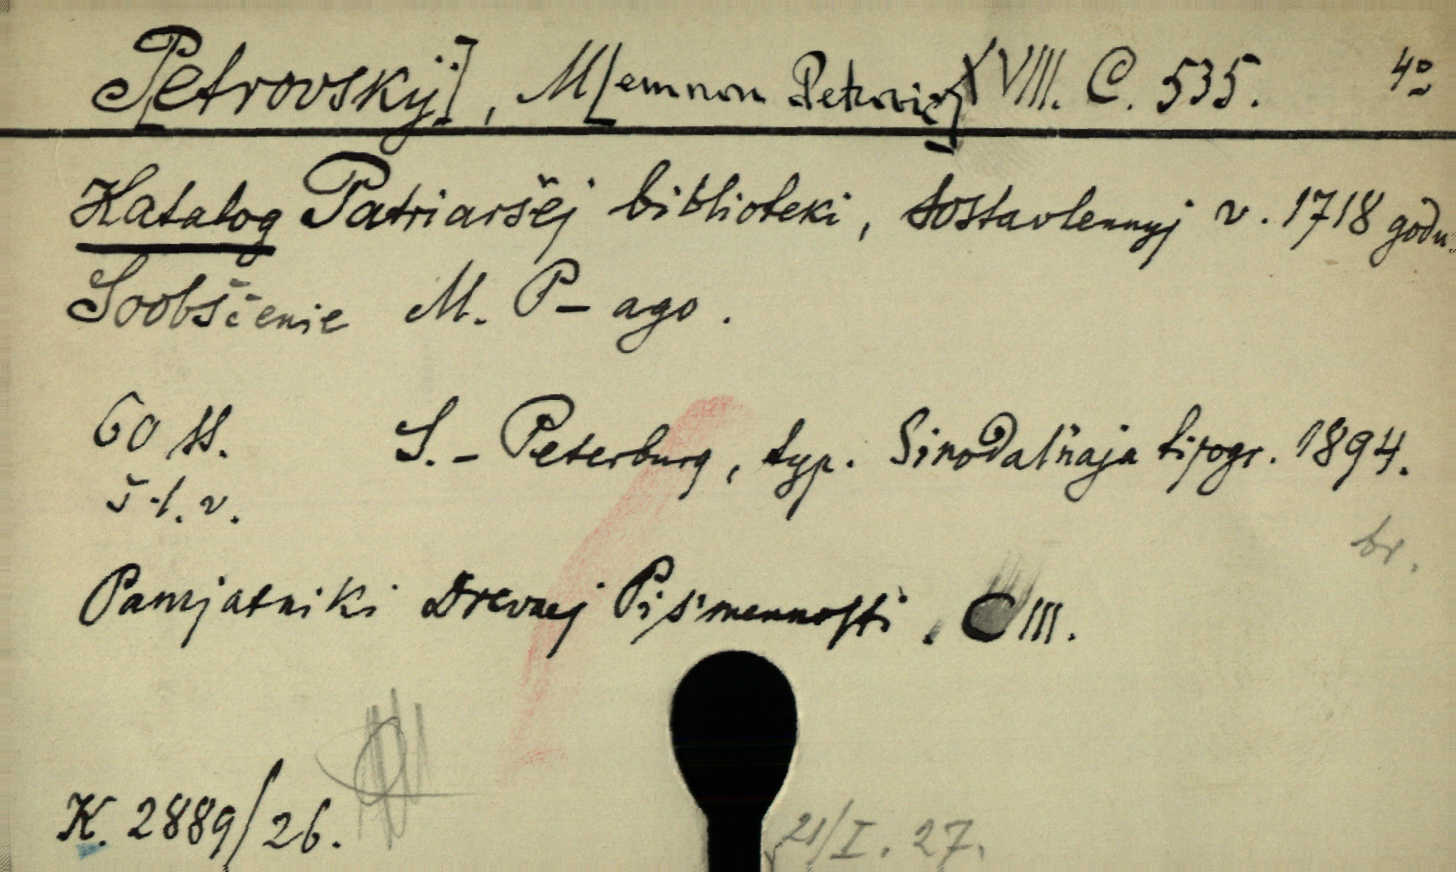 P[etrovskÿ], M[emnon Petrovič] XVIII. C. 535. 4º
Katalog Patriaršėj biblioteki, sostavlennyj v. 1718 godu.
Soobščenie M. P-ago.
60 ss. S.-Peterburg, typ. Sinodal'naja tipogr. 1894.
br.
Pamjatniki Drevnej Pis'mennosti. CIII.
K. 2889/26.
21/I. 27.